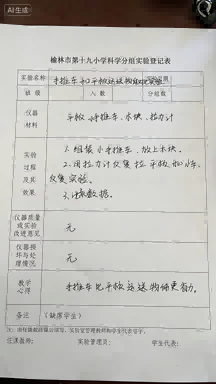 AI生成
榆林市第十九小学科学分组实验登记表
实验名称 手推车和平板运送物体
班级 人数 分组数
仪器材料 平板、小推车、木块、拉力计
实验过程及其效果 1. 组装小手推车、放上木块。
2. 用拉力计
反复实验。
3. 记录数据。
仪器质量或实验改进意见 无
仪器损坏与处理情况 无
教学心得 手推车比平板运送物体更省力。
备注 (缺席学生)
任课教师: 实验管理员: 学生代表: